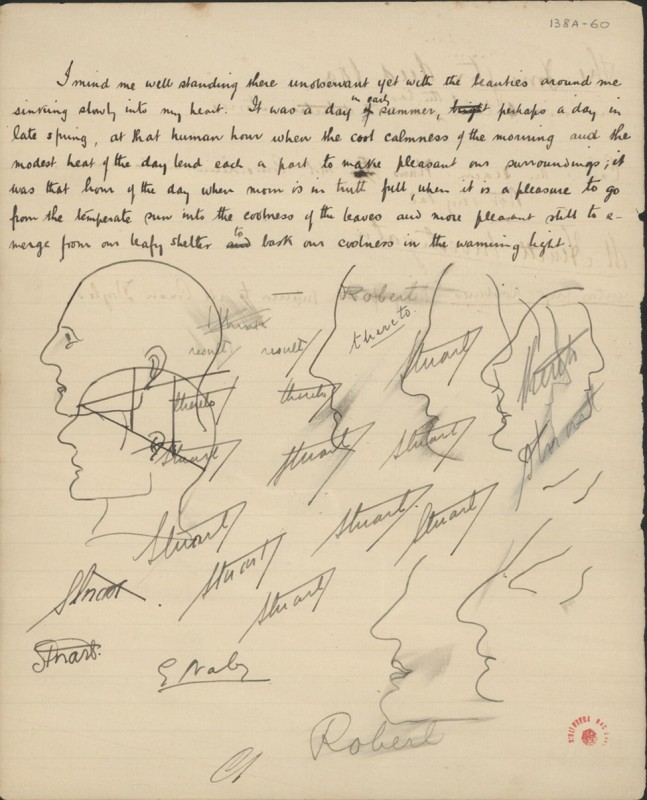 138A-60
I mind me well standing there unobservant yet with the beauties around me
sinking slowly into my heart. It was a day in early summer, bright perhaps a day in
late spring, at that human hour when the cool calmness of the morning and the
modest heat of the day lend each a part to make pleasant our surroundings; it
was that hour of the day when morn is in truth full, when it is a pleasure to go
from the temperate sun into the coolness of the leaves and more pleasant still to e-
merge from our leafy shelter and to bask our coolness in the warming light.
Robert
thereto.
result result
Stuart
thereto thereto
thereto
Stuart Stuart Stuart
Stuart
Stuart Stuart Stuart
Stuart
Stuart
Stuart
Stuart.
Robert